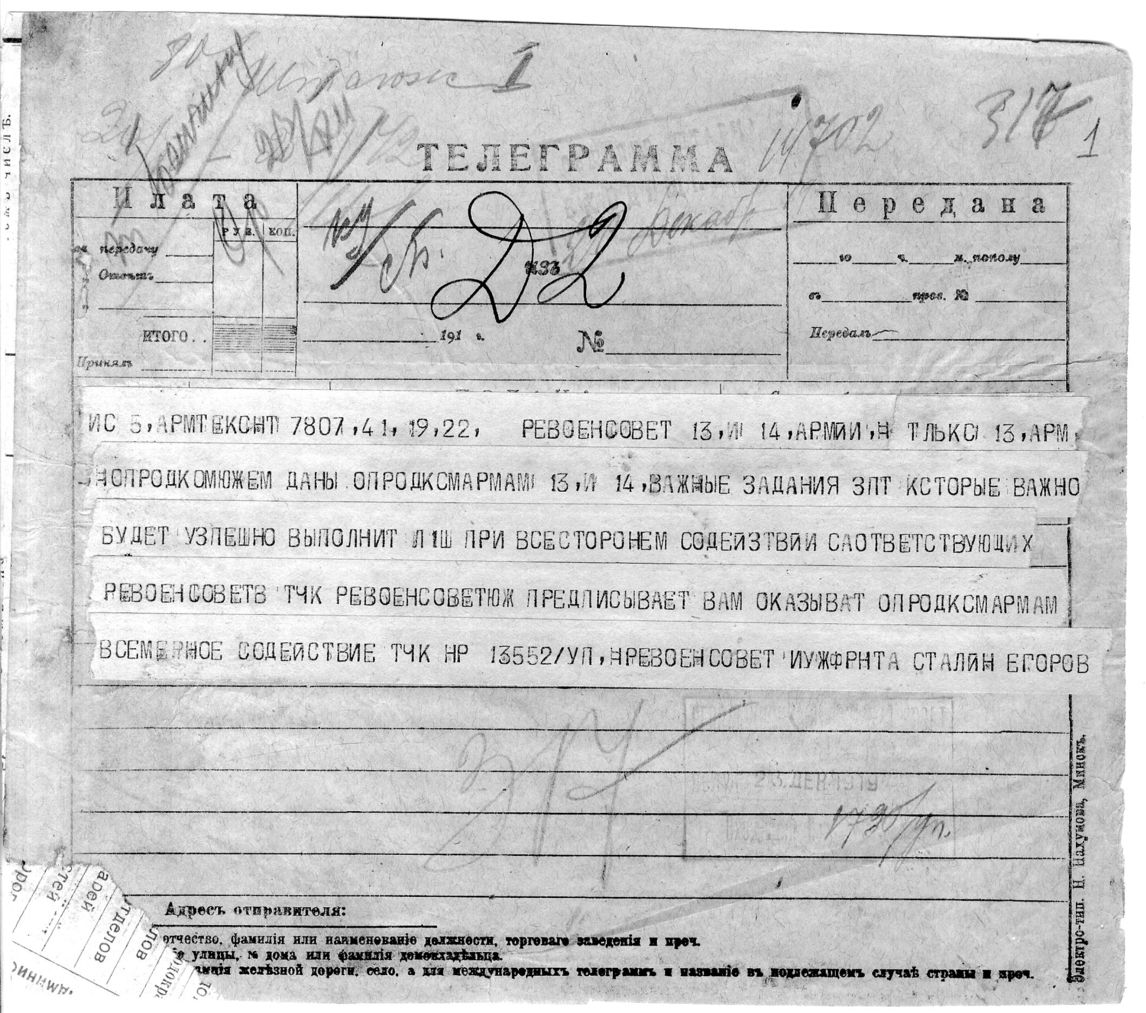 317
1
11702
ТЕЛЕГРАММА
Плата
РУБ. КОП.
за передачу
Отвѣтъ
ИТОГО..
Принялъ
Д2
изъ
декабр
191 г.
№
Передана
го ч. м. пополу
съ пров. №
Передалъ
ИС 5,АРМТЕКСНТ 7807,41,19,22, РЕВОЕНСОВЕТ 13,И 14,АРМИИ,Н ТЛЬКО 13,АРМ,
НОПРОДКОМЮЖЕМ ДАНЫ ОПРОДКСМАРМАМ 13,И 14,ВАЖНЫЕ ЗАДАНИЯ ЗПТ КСТОРЫЕ ВАЖНО
БУДЕТ УЗПЕШНО ВЫПОЛНИТ Л1Ш ПРИ ВСЕСТОРОНЕМ СОДЕЙЗТВИИ САОТВЕТСТВУЮЩИХ
РЕВОЕНСОВЕТВ ТЧК РЕВОЕНСОВЕТЮЖ ПРЕДПИСЫВАЕТ ВАМ ОКАЗЫВАТ ОПРОДКСМАРМАМ
ВСЕМЕРНОЕ СОДЕЙСТВИЕ ТЧК НР 13552/УП,НРЕВОЕНСОВЕТ ИУЖФРНТА СТАЛИН ЕГОРОВ
23 ДЕК 1919
Адресъ отправителя:
отчество, фамилія или наименованіе должности, торговаго заведенія и проч.
улицы, № дома или фамилія домовладѣльца.
анція желѣзной дороги, село, а для международныхъ телеграммъ и названіе въ подлежащемъ случаѣ страны и проч.
Электро-тип. Н. Нахумова, Минскъ.
отделов